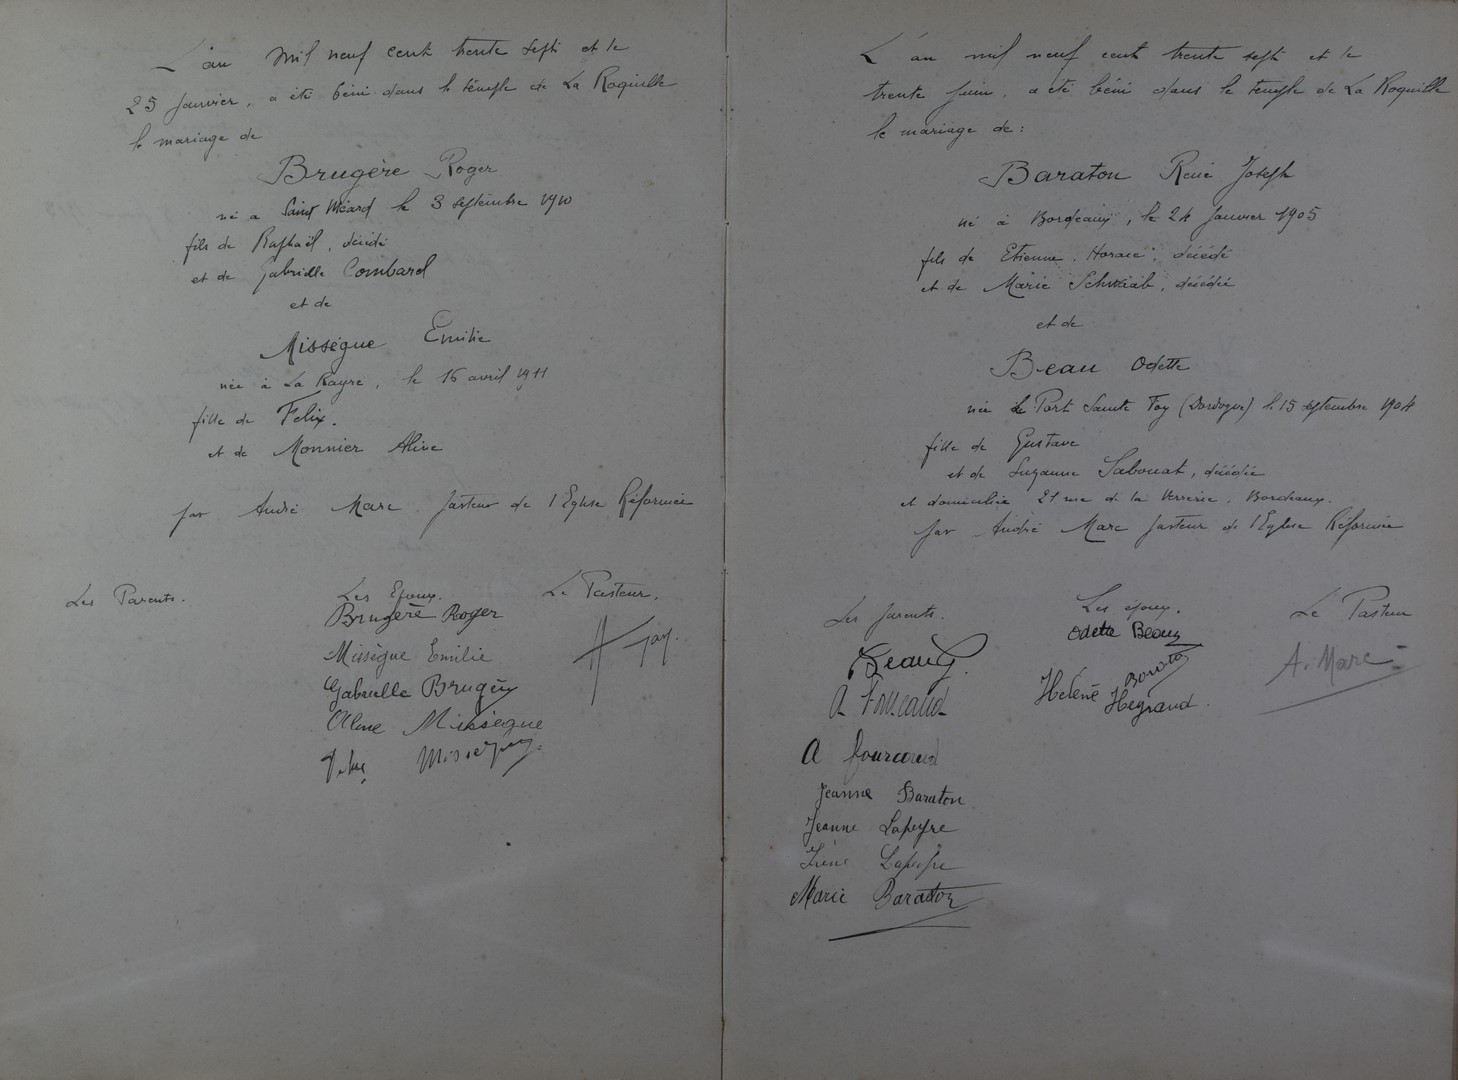 L'an mil neuf cent trente sept et le
25 Janvier, a été béni dans le temple de La Roquille
le mariage de
Brugère Roger
né a Saint Méard le 3 septembre 1910
fils de Raphaël, décédé
et de Gabrielle Combard
et de
Missègue Emilie
née à La Rayre, le 15 avril 1911
fille de Felix.
et de Monnier Aline
par André Marc Pasteur de l'Eglise Réformée
Les Parents.
Les Epoux.
Le Pasteur.
Brugère Roger
Missègue Emilie
Gabrielle Brugère
Aline Missègue
Missegue
L'an mil neuf cent trente sept et le
trente Juin, a été béni dans le temple de La Roquille
le mariage de:
Baraton René Joseph
né à Bordeaux, le 24 Janvier 1905
fils de Etienne. Horace, décédé
et de Marie Schwiab, décédée
et de
Beau Odette
née de Port Sainte Foy (Dordogne) le 15 septembre 1904
fille de Gustave
et de Suzanne Sabouat, décédée
et domiciliée, 21 rue de la Verrerie, Bordeaux.
par André Marc Pasteur de l'Eglise Réformée
Les parents.
Les époux.
Le Pasteur
Beau G.
Odette Beau
A. Marc
Baraton
A Foucaud
Hélène Hegrand
A fourcaud
Jeanne Baraton
Jeanne Lapeyre
Irène Lapeyre
Marie Baraton